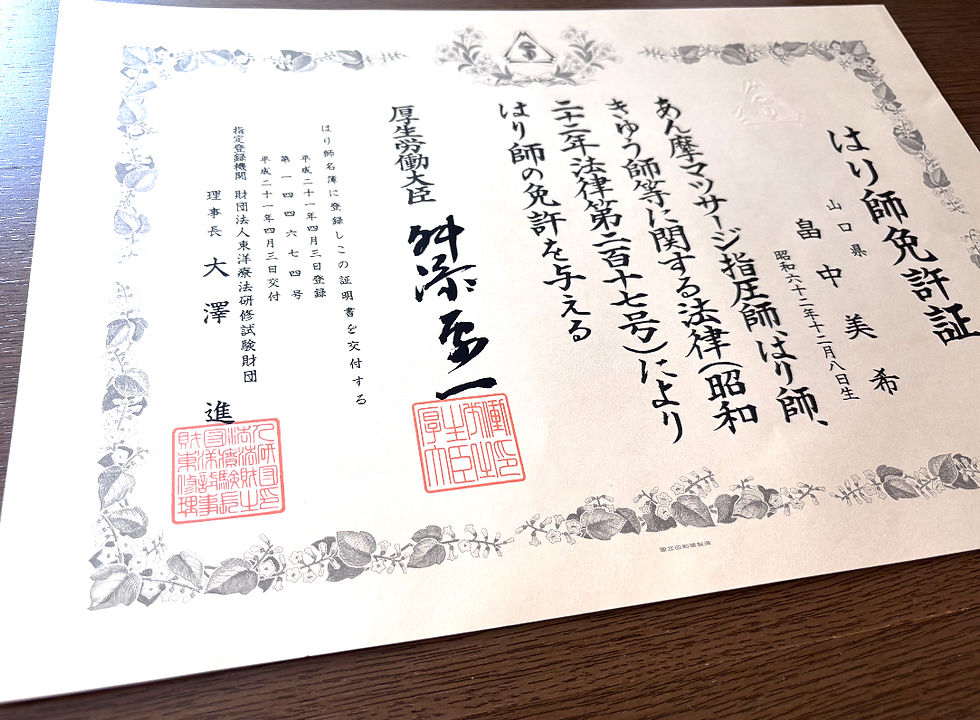 はり師免許証
山口県
畠中美希
昭和六十二年十二月八日生
あん摩マツサージ指圧師、はり師、
きゆう師等に関する法律(昭和
二十二年法律第二百十七号)により
はり師の免許を与える
厚生労働大臣
舛添要一
はり師名簿に登録しこの証明書を交付する
平成二十一年四月三日登録
第一四四六七四号
平成二十一年四月三日交付
指定登録機関
財団法人東洋療法研修試験財団
理事長 大澤 進
国立印刷局製造